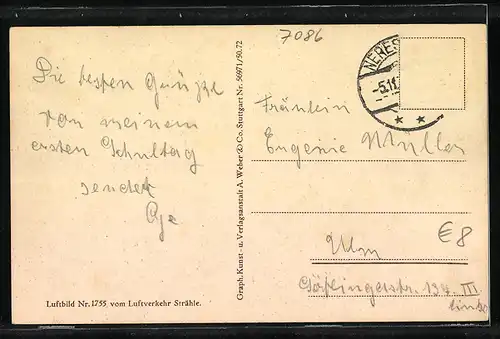 7086
NERES
-5.11.
Die besten Grüße
von meinem
ersten Schultag
sendet
Fräulein
Eugenie Müller
Ulm
Göplingerstr. 134 III
links
€8
Graph. Kunst- u. Verlagsanstalt A. Weber & Co. Stuttgart Nr. 56971/50.72
Luftbild Nr. 1755 vom Luftverkehr Strähle.